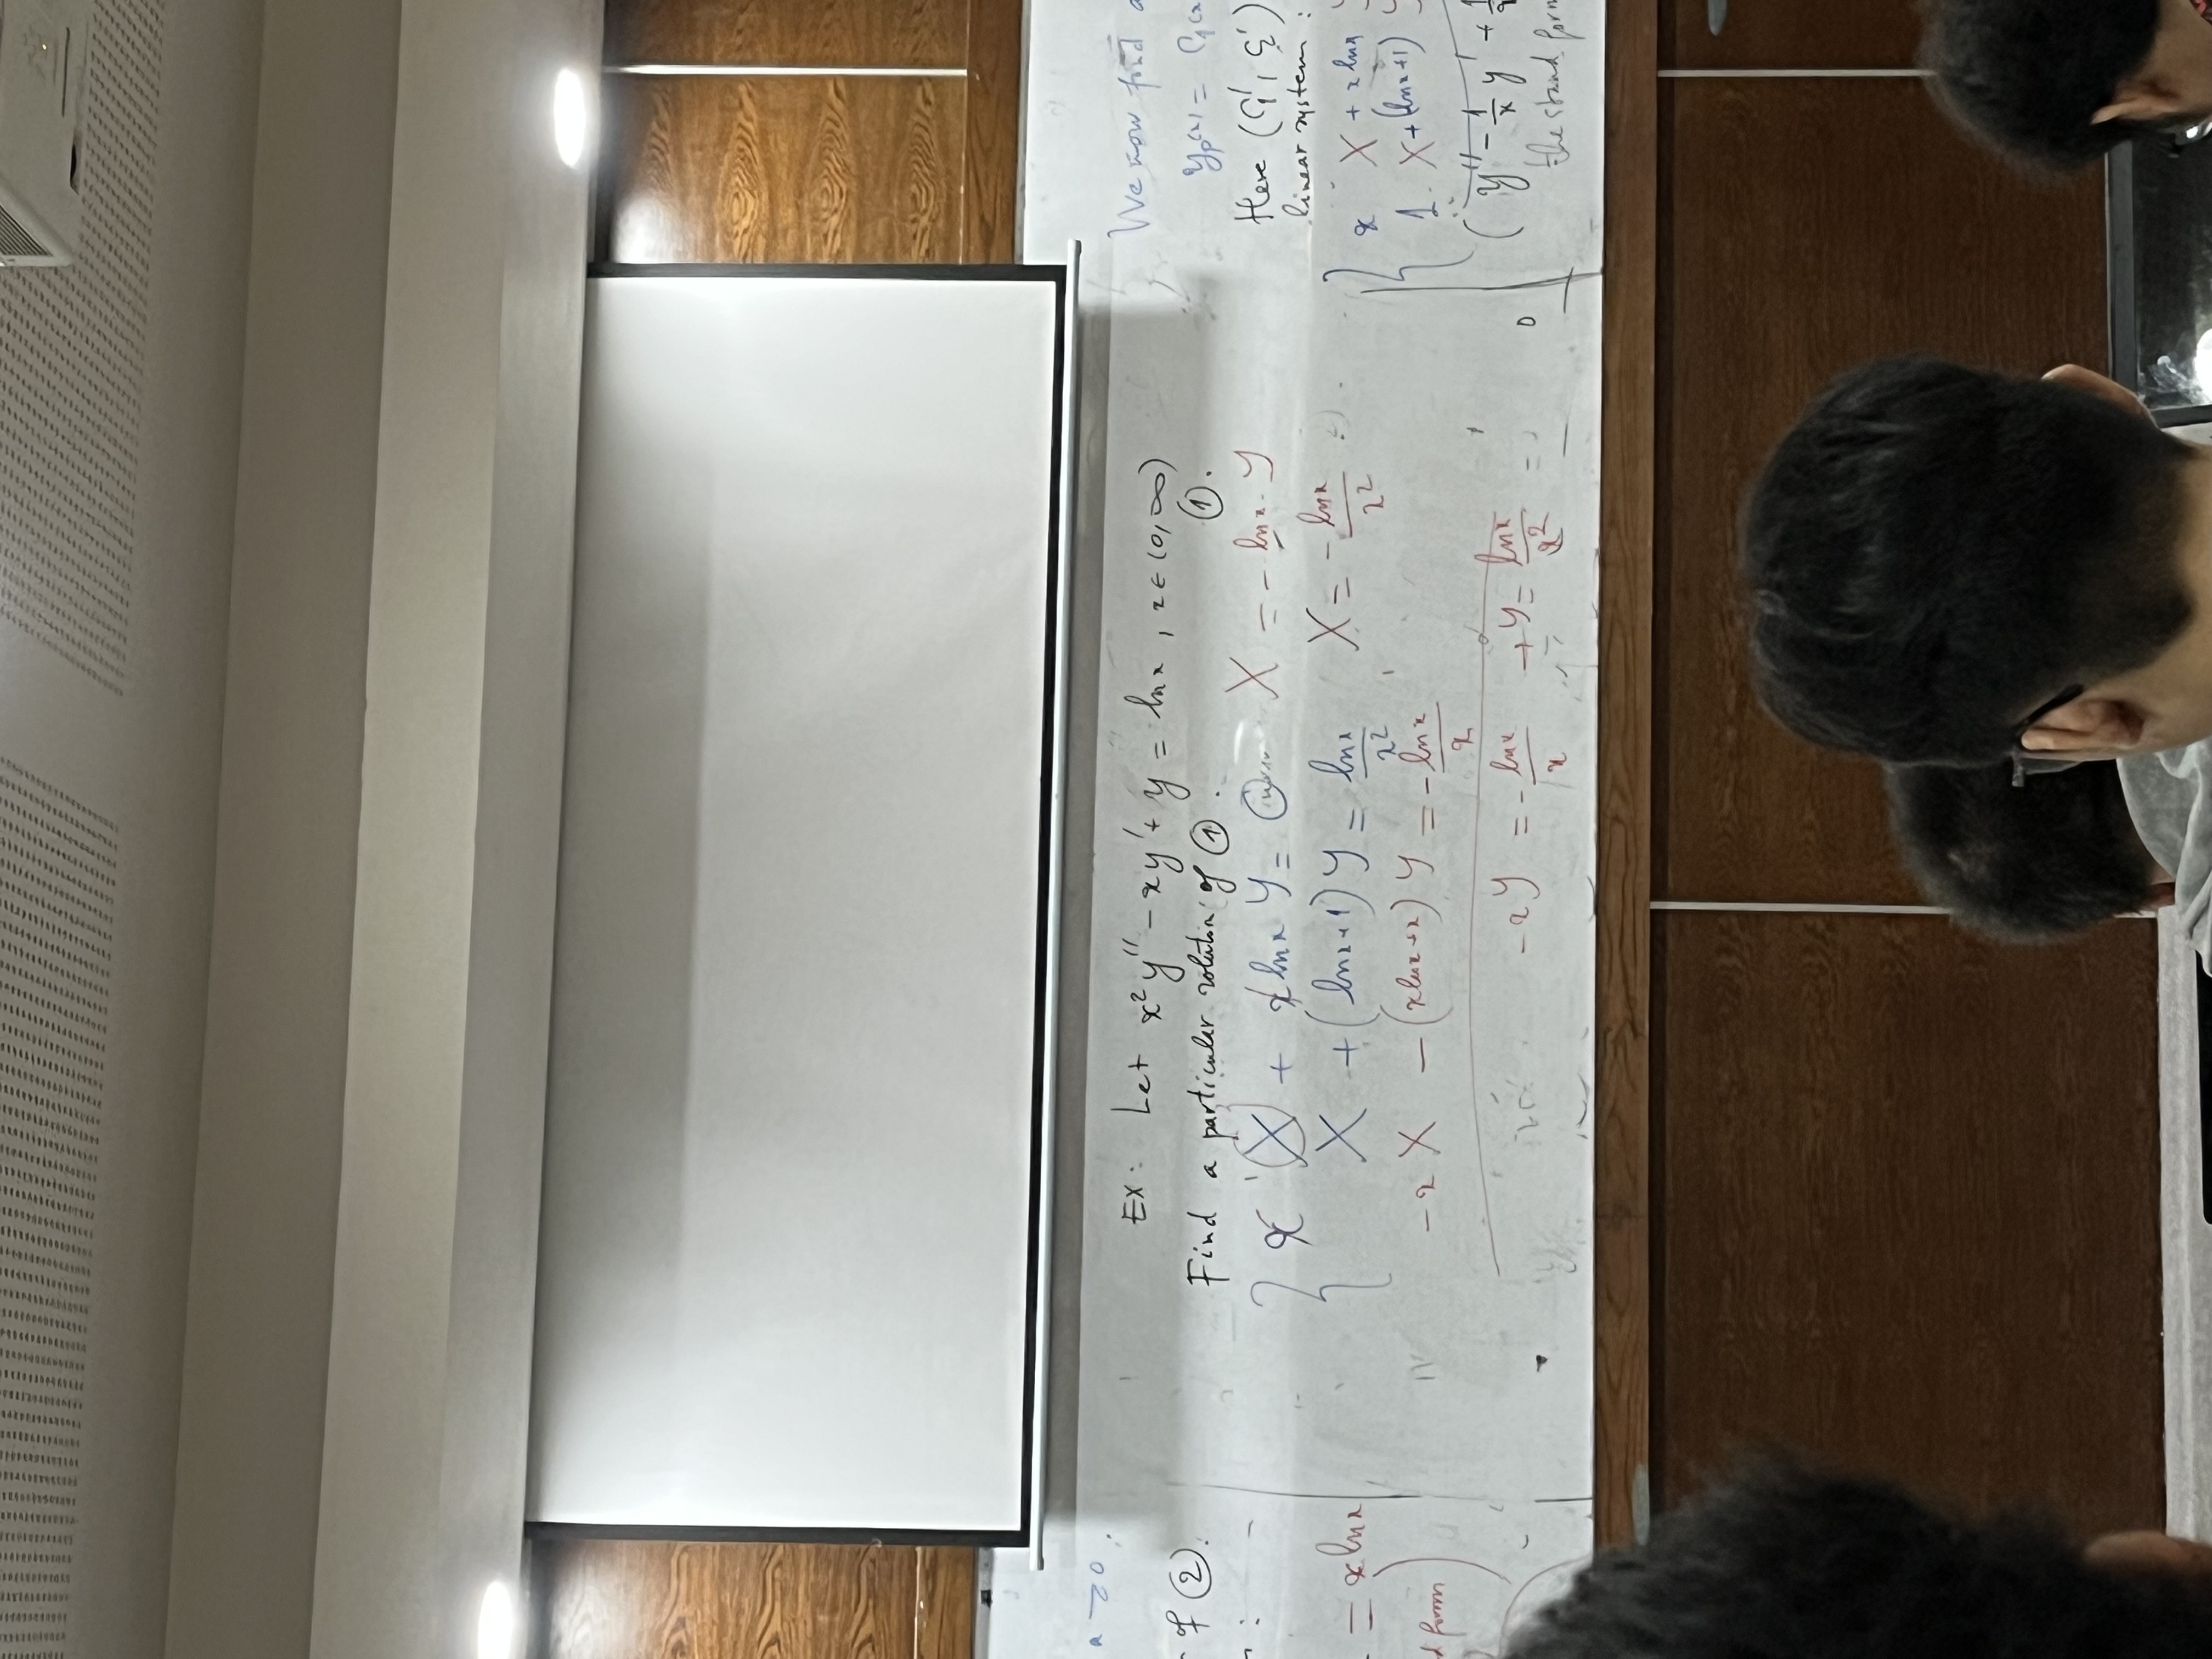 n ≥ 0.
of ②.
= x ln x
d form
EX: Let x²y'' - xy' + y = ln x, x ∈ (0, ∞)
①.
Find a particular solution of ①.
x X + x ln x Y = 0 X = - ln x · Y
X + (ln x + 1) Y = ln x / x² X = - ln x / x²
- x X - (x ln x + x) Y = - ln x / x
- x Y = - ln x / x → Y = ln x / x²
We now find a
yp(x) = C₁(x
Here (C₁', C₂')
linear system:
x X + x ln x Y
1. X + (ln x + 1) Y
( y'' - 1/x y' + 1
the stand. form